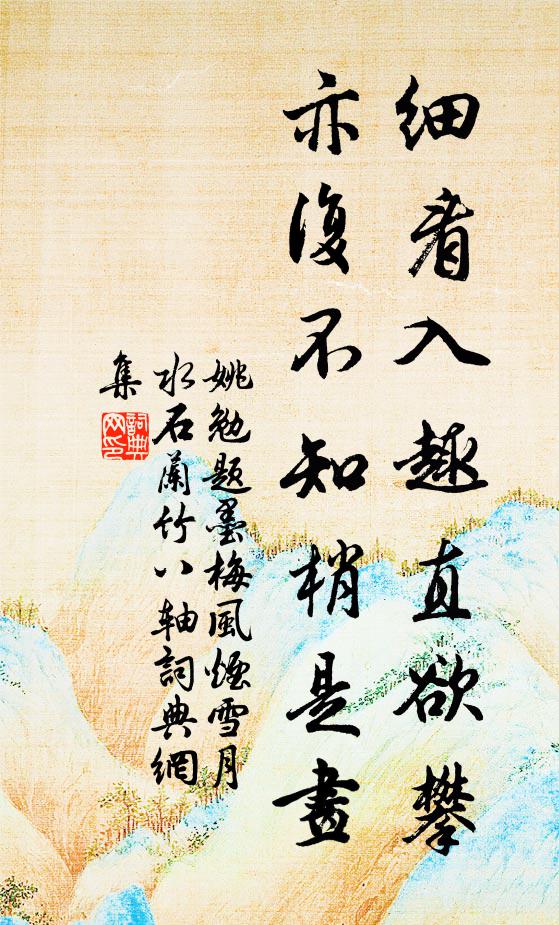 細看入趣直欲攀
亦復不知梢是畫
姚勉題墨梅風煙雪月
水石蘭竹八軸詞典網
集
詞典
网印